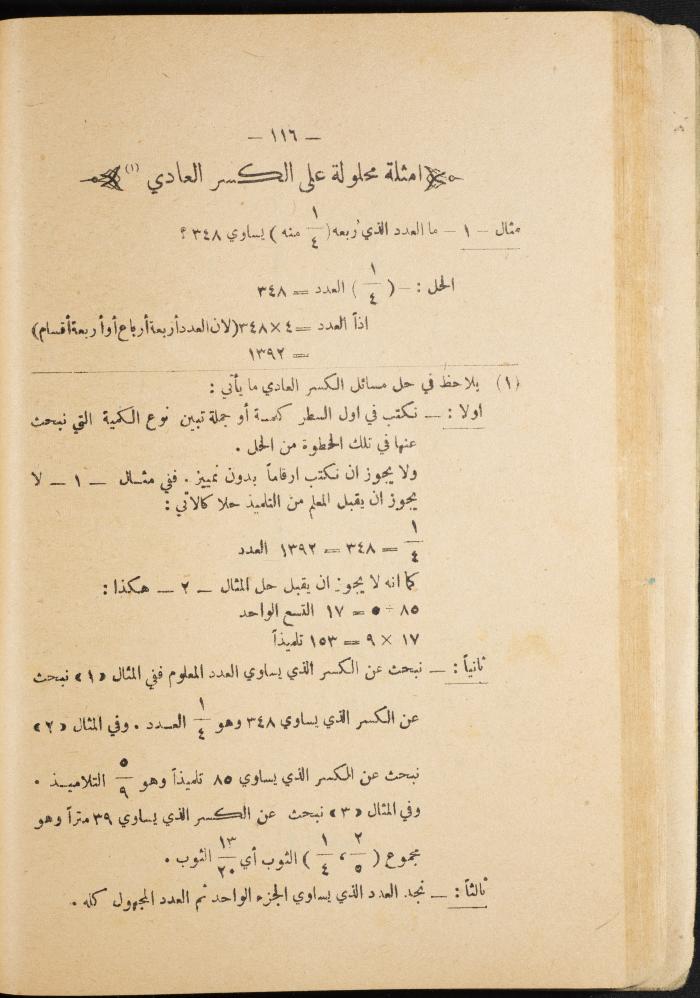 — ١١٦ —
امثلة محلولة على الكسر العادي (١)
مثال — ١ — ما العدد الذي رُبعه (١/٤ منه) يساوي ٣٤٨ ؟
الحل : — (١/٤) العدد = ٣٤٨
اذاً العدد = ٤ × ٣٤٨ (لان العدد أربعة أرباع أو أربعة أقسام)
= ١٣٩٢
(١) يلاحظ في حل مسائل الكسر العادي ما يأتي :
اولا : — نكتب في اول السطر كلمة أو جملة تبين نوع الكمية التي نبحث
عنها في تلك الخطوة من الحل .
ولا يجوز ان نكتب ارقاماً بدون تمييز . ففي مثال — ١ — لا
يجوز ان يقبل المعلم من التلميذ حلا كالآتي :
١/٤ = ٣٤٨ = ١٣٩٢ العدد
كما انه لا يجوز ان يقبل حل المثال — ٢ — هكذا :
٨٥ ÷ ٥ = ١٧ التسع الواحد
١٧ × ٩ = ١٥٣ تلميذاً
ثانياً : — نبحث عن الكسر الذي يساوي العدد المعلوم ففي المثال «١» نبحث
عن الكسر الذي يساوي ٣٤٨ وهو ١/٤ العدد . وفي المثال «٢»
نبحث عن الكسر الذي يساوي ٨٥ تلميذاً وهو ٥/٩ التلاميذ .
وفي المثال «٣» نبحث عن الكسر الذي يساوي ٣٩ متراً وهو
مجموع (٢/٥ ، ١/٤) الثوب أي ١٣/٢٠ الثوب .
ثالثاً : — نجد العدد الذي يساوي الجزء الواحد ثم العدد المجهول كله .